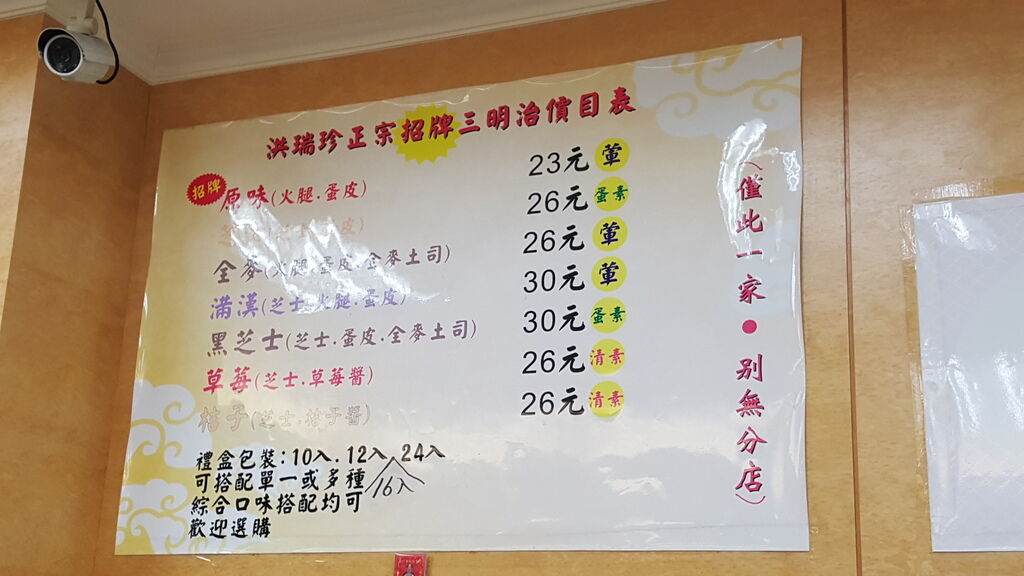 洪瑞珍正宗招牌三明治價目表
招牌 原味(火腿.蛋皮) 23元 葷
芝士(芝士.蛋皮) 26元 蛋素
全麥(火腿.蛋皮.全麥土司) 26元 葷
滿漢(芝士.火腿.蛋皮) 30元 葷
黑芝士(芝士.蛋皮.全麥土司) 30元 蛋素
草莓(芝士.草莓醬) 26元 清素
桔子(芝士.桔子醬) 26元 清素
禮盒包裝:10入.12入.24入
16入
可搭配單一或多種
綜合口味搭配均可
歡迎選購
(僅此一家●別無分店)